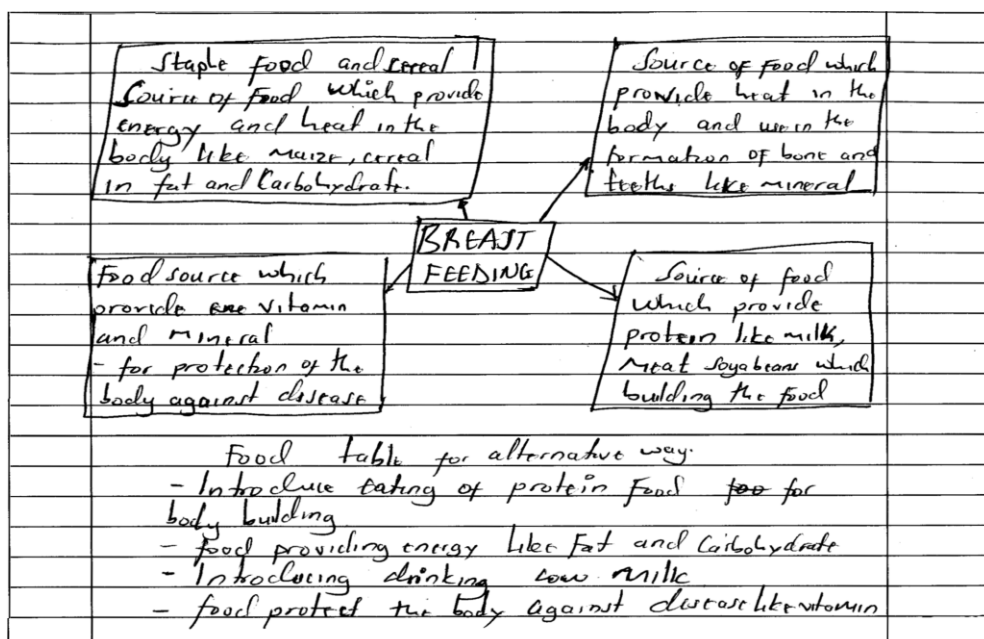 Staple food and cereal
Source of food which provide
energy and heat in the
body like maize, cereal
in fat and Carbohydrate.
Source of food which
provide heat in the
body and use in the
formation of bone and
teeths like mineral
BREAST
FEEDING
Food source which
provide vitamin
and mineral
- for protection of the
body against disease
Source of food
which provide
protein like milk,
meat soyabeans which
building the food
Food table for alternative way.
- Introduce eating of protein food for
body building
- food providing energy like fat and Carbohydrate
- Introducing drinking cow milk
- food protect the body against disease like vitamin